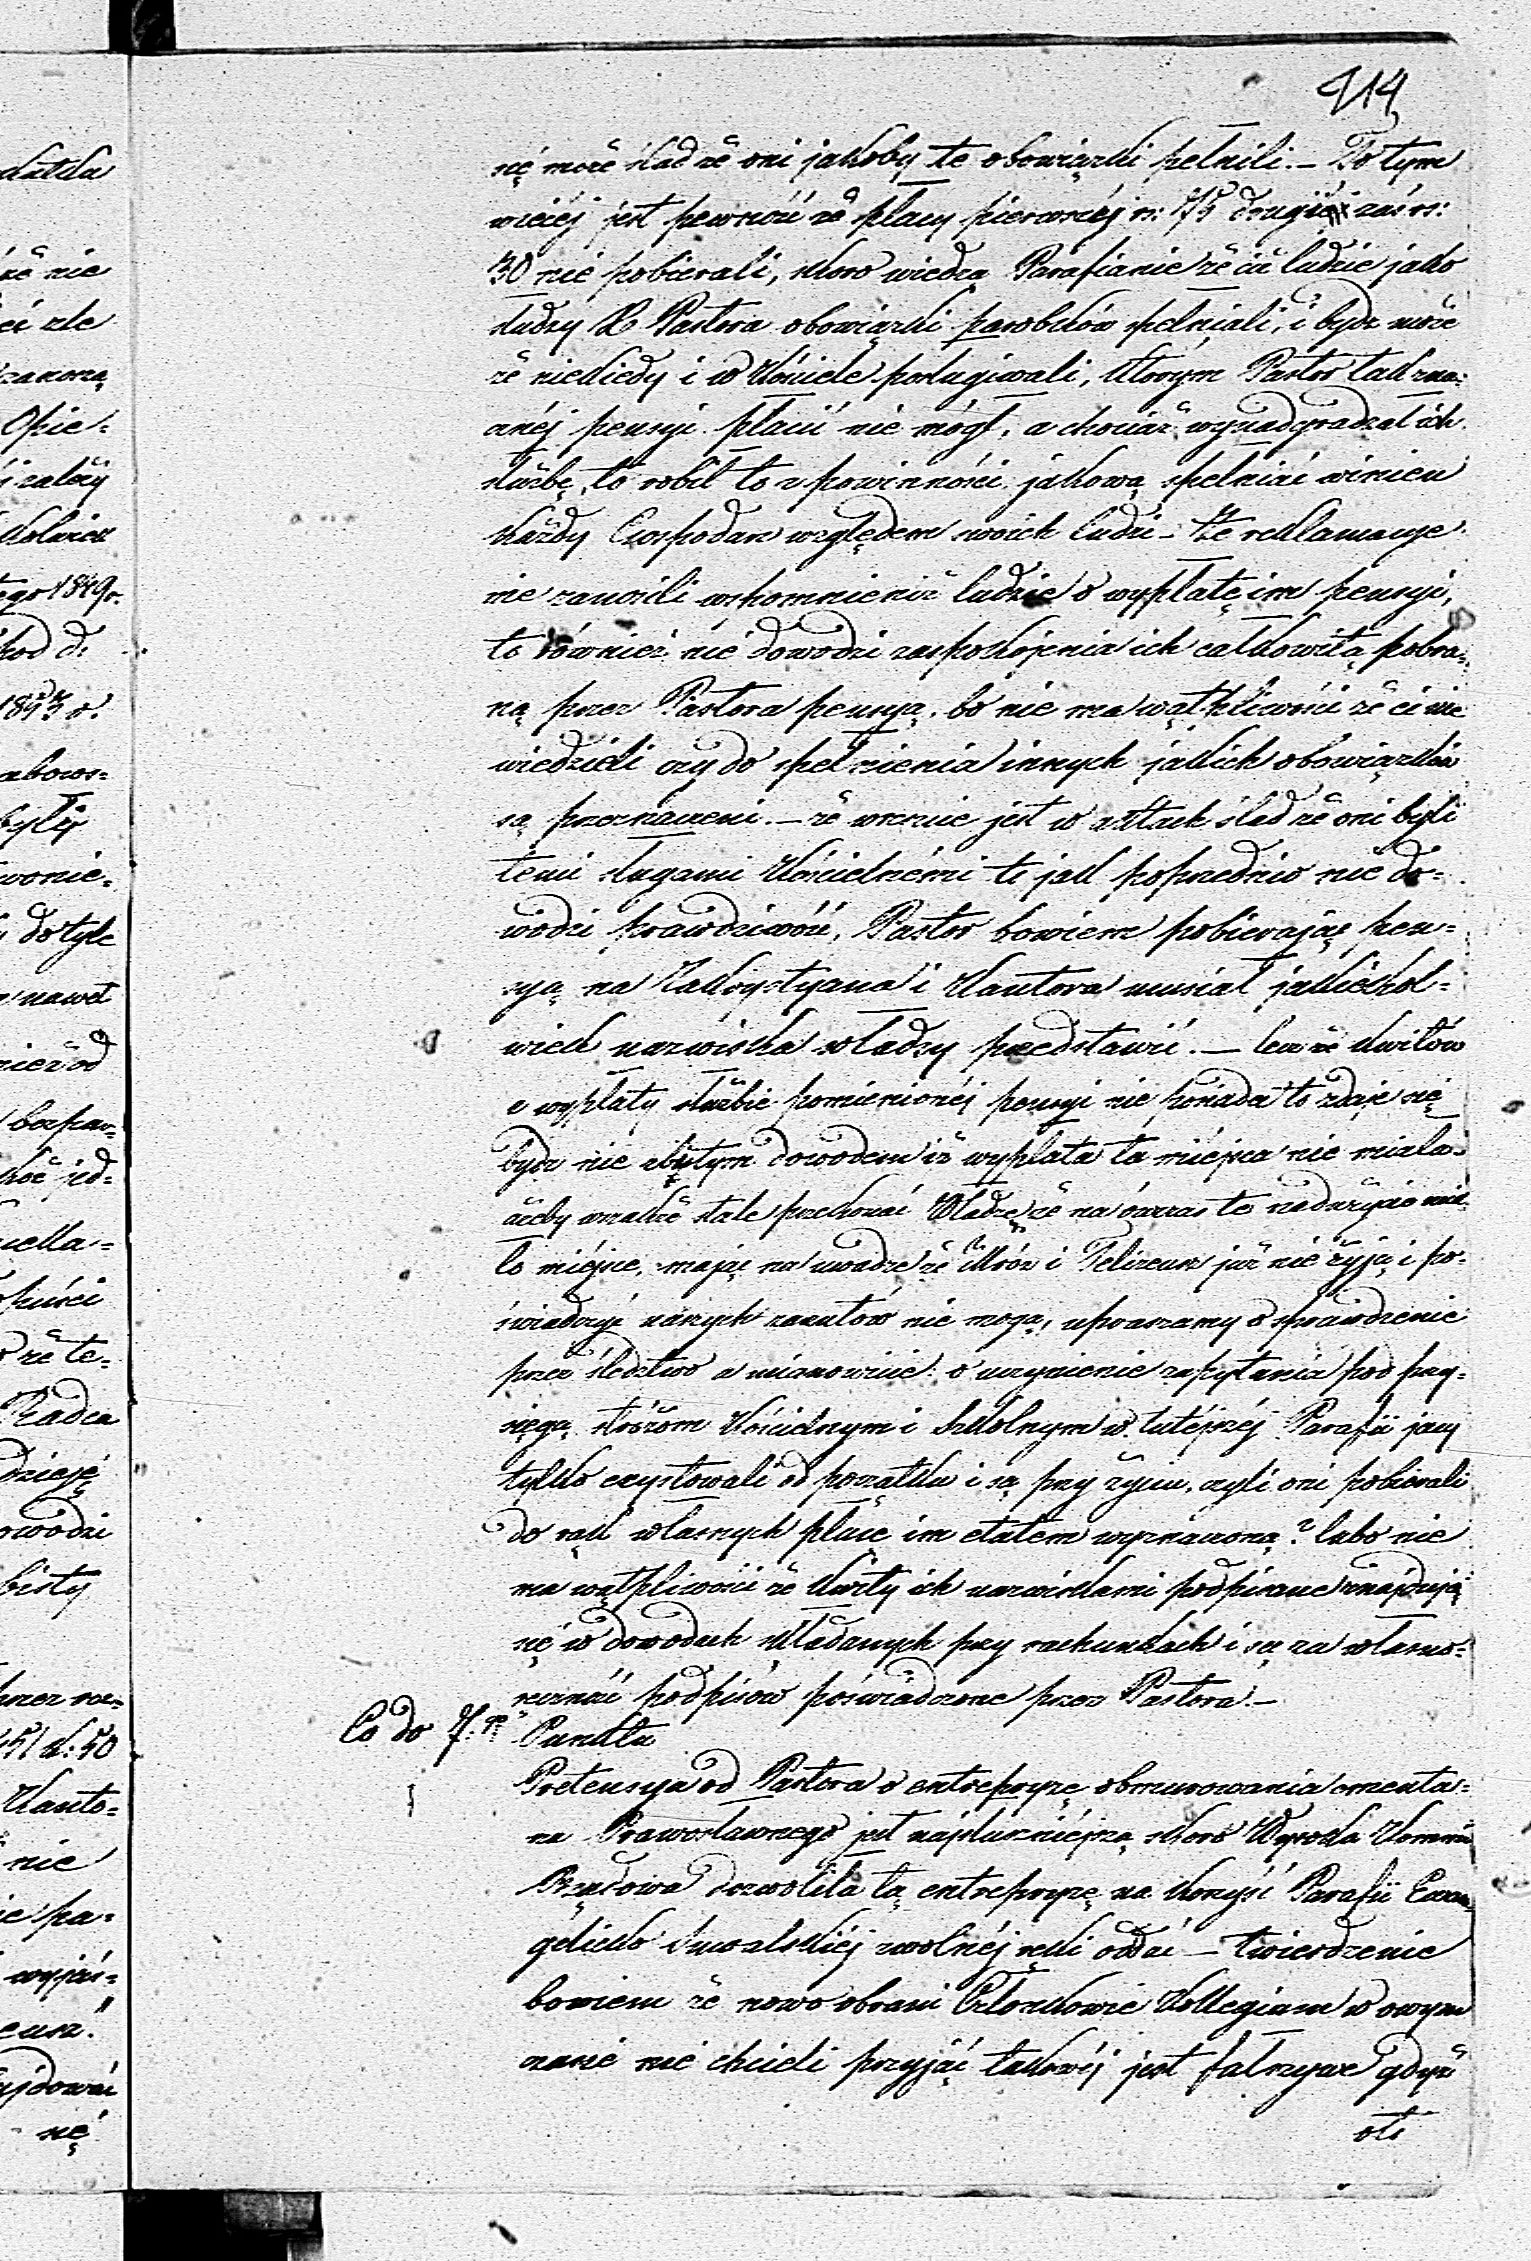 414
się może ślad że oni jakoby te obowiązki pełnili. – To tym
więcéj jest pewność że płacy pierwszéj rs: 75 drugiéj zaś rs:
30 nie pobierali, skoro wiedzą Parafianie że ciż ludzie jako
słudzy X Pastora obowiązki parobków spełniali, i bydź może
że niekiedy i w Kościele posługiwali, którym Pastor tak zna-
cznéj pensyi płacić nie mógł, a chociaż wynadgradzał ich
służbę, to robił to z powinności jakową spełniać winien
każdy Gospodarz względem swoich ludzi – Że reklamacye
nie zanosili wspomnieniż ludzie o wypłatę im pensyi,
to również nie dowodzi zaspokojenia ich całkowitą pobra-
ną przez Pastora pensyą, bo nie ma wątpliwości że ci nie
wiedzieli czy do spełnienia innych jakich obowiązków
są przeznaczeni. – że wreszcie jest w aktach ślad że oni byli
temi sługami Kościelnémi to jak poprzednio nie do-
wodzi prawdziwość, Pastor bowiem pobierając pen-
syą na Zakrystyana i Kantora musiał jakiekol-
wiek nazwiska władzy przedstawić. – lecz że kwitów
z wypłaty służbie pomienionéj pensyi nie posiada to zdaje się
bydź nie zbytym dowodem iż wypłata ta miéjsca nie miała
ażeby wszakże stale przekonać Władzę że na ówczas te nadużycie mia-
ło miéjsce, mając na uwadze że Mróz i Felizeusz już nie żyją i po-
świadczyć naszych zarzutów nie mogą, upraszamy o sprawdzenie
przez śledztwo a mianowicie: o uczynienie zapytania pod przy-
sięgą stróżom Kościelnym i Szkolnym w tutéjszéj Parafii jacy
tylko exystowali od początku i są przy życiu, czyli oni pobierali
do rąk własnych płacę im etatem wyznaczoną? lubo nie
ma wątpliwości że kwity ich nazwiskami podpisane znajdują
się w dowodach składanych przy rachunkach i są za własno-
ręczność podpisów poświadczone przez Pastora. –
Co do 7.go Punktu
Pretensya od Pastora o entrepryzę obmurowania cmenta-
rza Prawosławnego jest najsłuszniéjszą skoro Wysoka Kommis:
Rządowa dozwoliła tą entrepryzę na korzyść Parafii Ewan-
gelicko Suwalskiéj z wolnéj ręki oddać – twierdzenie
bowiem że nowo obrani Członkowie Kollegium w owym
czasie nie chcieli przyjąć takowéj jest fałszywe gdyż
oto